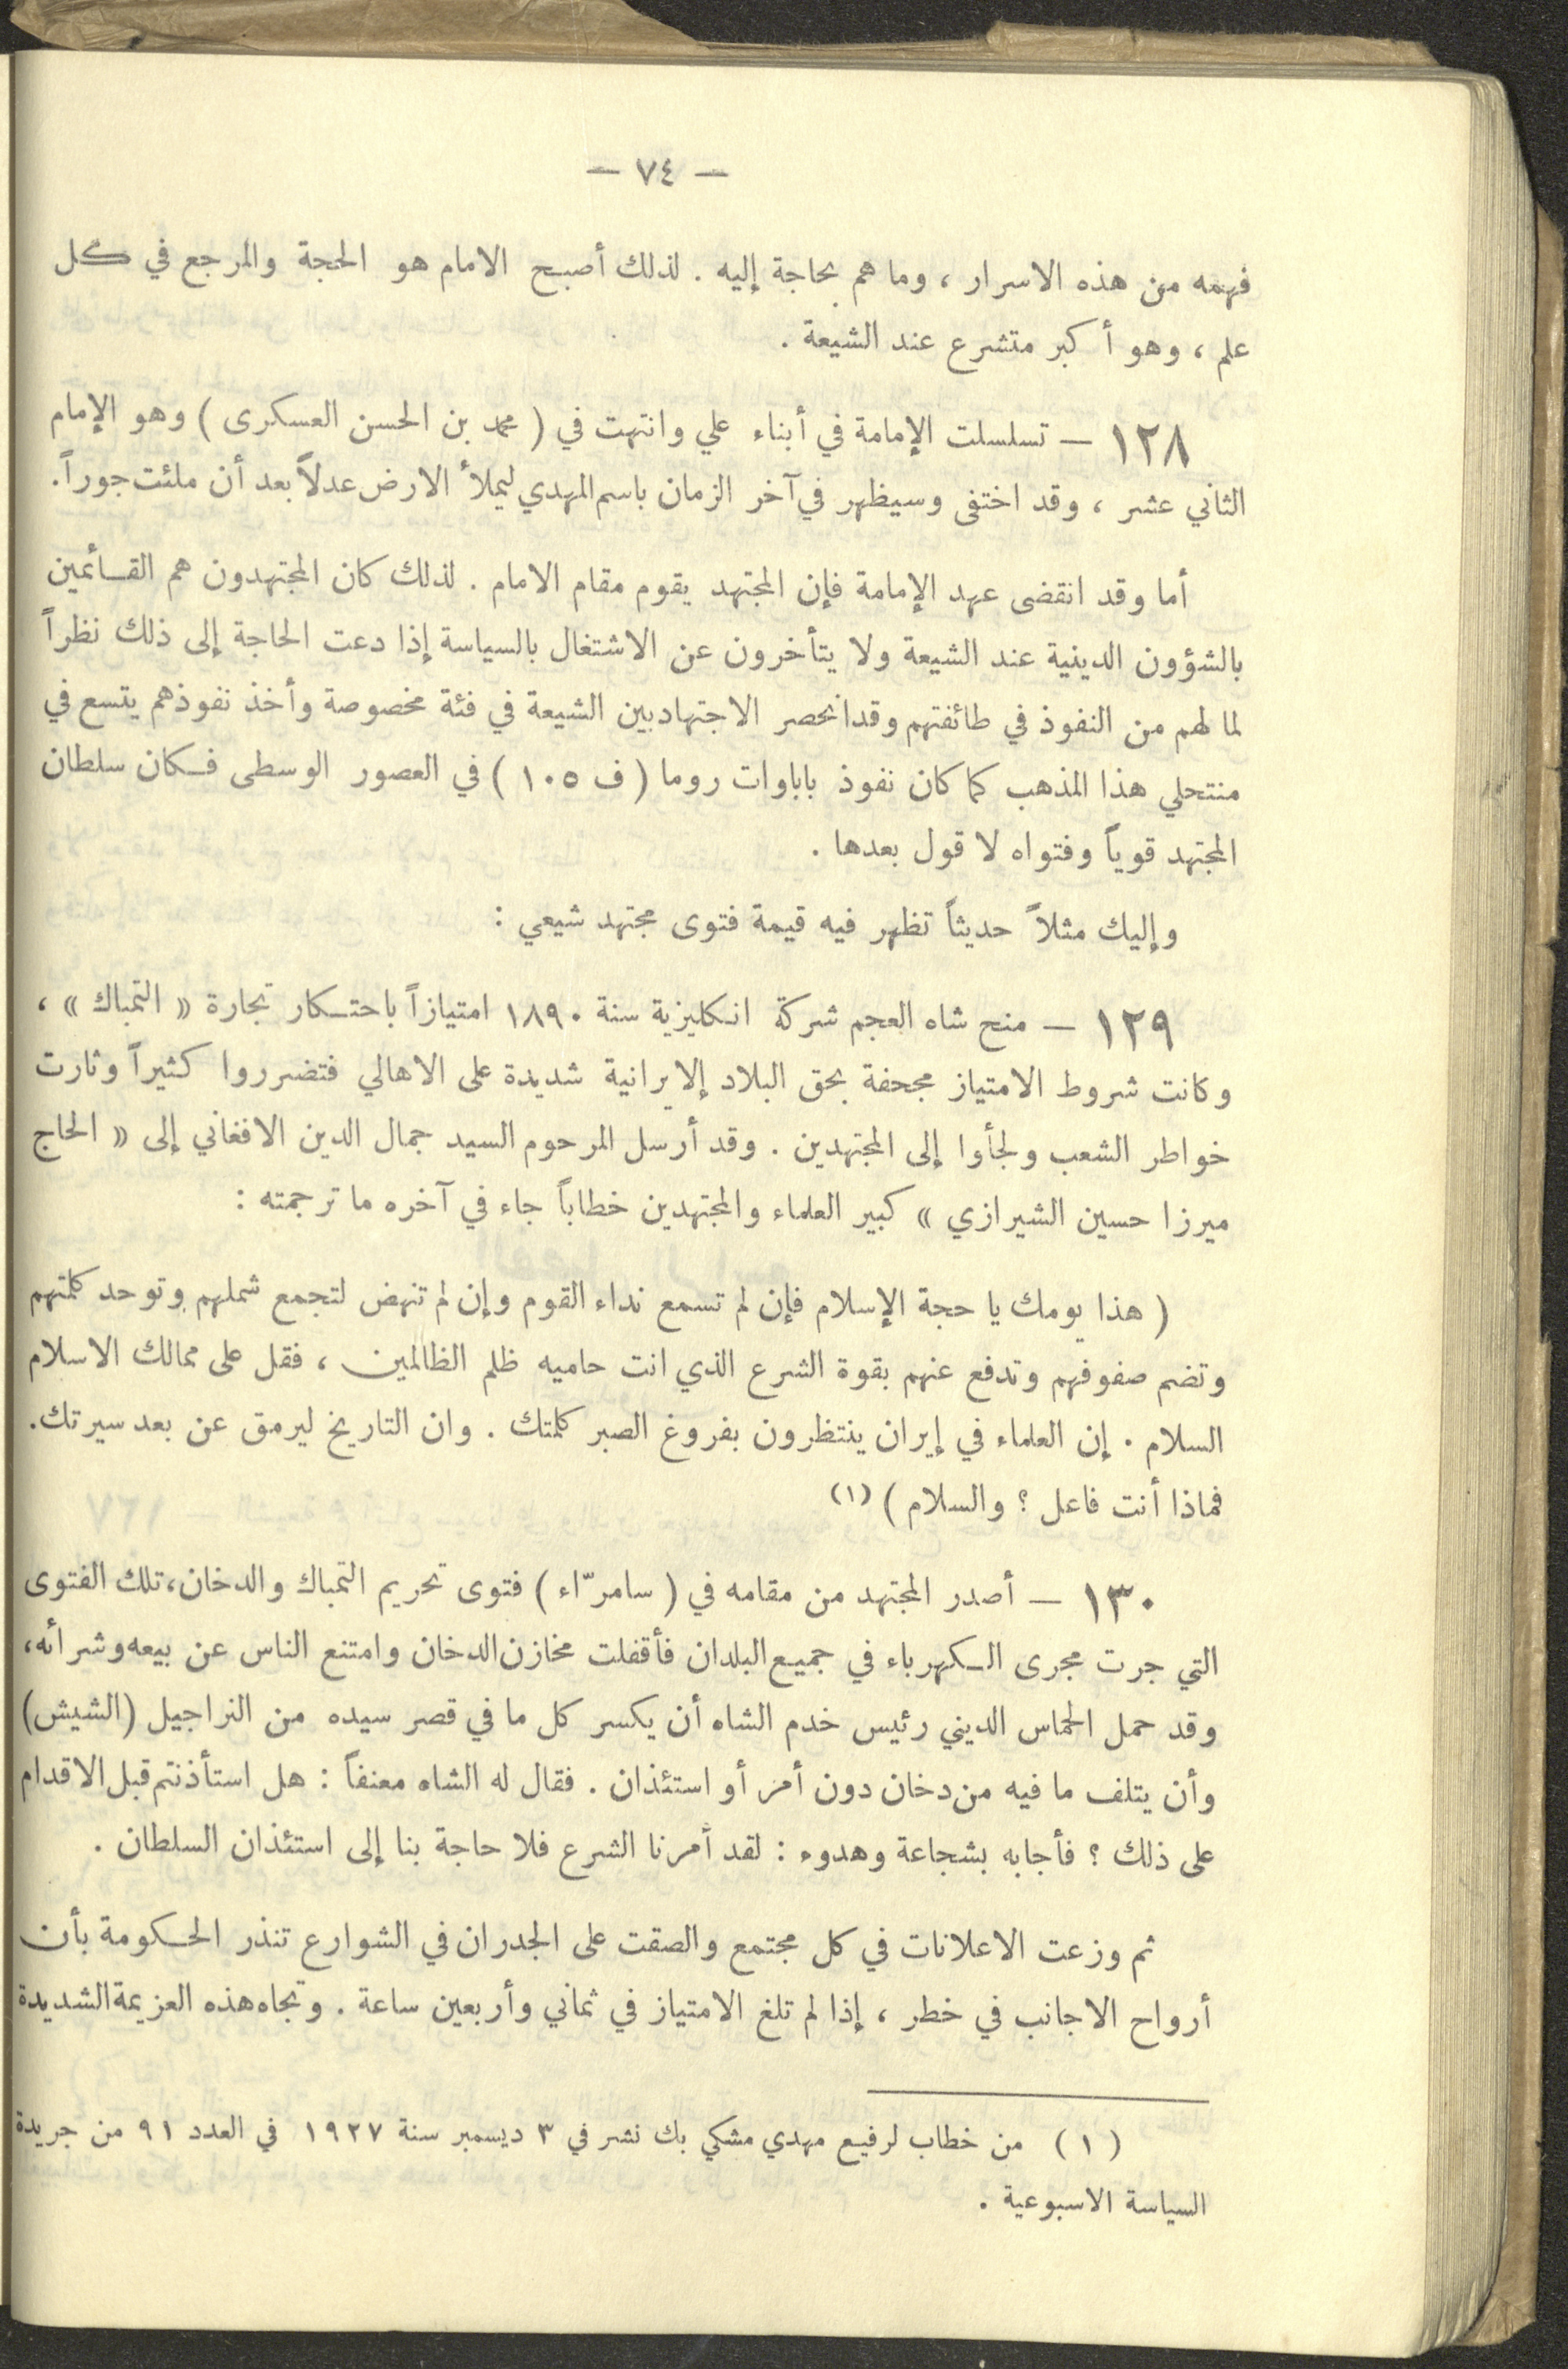 — ٧٤ —
فهمه من هذه الاسرار ، وما هم بحاجة إليه . لذلك أصبح الامام هو الحجة والمرجع في كل
علم ، وهو أكبر متشرع عند الشيعة .
١٢٨ — تسلسلت الإمامة في أبناء علي وانتهت في ( محمد بن الحسن العسكرى ) وهو الإمام
الثاني عشر ، وقد اختفى وسيظهر في آخر الزمان باسم المهدي ليملأ الارض عدلاً بعد أن ملئت جوراً.
أما وقد انقضى عهد الإمامة فإن المجتهد يقوم مقام الامام . لذلك كان المجتهدون هم القائمين
بالشؤون الدينية عند الشيعة ولا يتأخرون عن الاشتغال بالسياسة إذا دعت الحاجة إلى ذلك نظراً
لما لهم من النفوذ في طائفتهم وقد انحصر الاجتهاد بين الشيعة في فئة مخصوصة وأخذ نفوذهم يتسع في
منتحلي هذا المذهب كما كان نفوذ باباوات روما ( ف ١٠٥ ) في العصور الوسطى فكان سلطان
المجتهد قوياً وفتواه لا قول بعدها .
وإليك مثلاً حديثاً تظهر فيه قيمة فتوى مجتهد شيعي :
١٢٩ — منح شاه العجم شركة انكليزية سنة ١٨٩٠ امتيازاً باحتكار تجارة « التمباك » ،
وكانت شروط الامتياز مجحفة بحق البلاد إلايرانية شديدة على الاهالي فتضرروا كثيراً وثارت
خواطر الشعب ولجأوا إلى المجتهدين . وقد أرسل المرحوم السيد جمال الدين الافغاني إلى « الحاج
ميرزا حسين الشيرازي » كبير العلماء والمجتهدين خطاباً جاء في آخره ما ترجمته :
( هذا يومك يا حجة الإسلام فإن لم تسمع نداء القوم وإن لم تنهض لتجمع شملهم وتوحد كلمتهم
وتضم صفوفهم وتدفع عنهم بقوة الشرع الذي انت حاميه ظلم الظالمين ، فقل على ممالك الاسلام
السلام . إن العلماء في إيران ينتظرون بفروغ الصبر كلمتك . وان التاريخ ليرمق عن بعد سيرتك.
فماذا أنت فاعل ؟ والسلام ) (١)
١٣٠ — أصدر المجتهد من مقامه في ( سامرّاء ) فتوى تحريم التمباك والدخان ، تلك الفتوى
التي جرت مجرى الكهرباء في جميع البلدان فأقفلت مخازن الدخان وامتنع الناس عن بيعه وشرائه،
وقد حمل الحماس الديني رئيس خدم الشاه أن يكسر كل ما في قصر سيده من النراجيل (الشيش)
وأن يتلف ما فيه من دخان دون أمر أو استئذان . فقال له الشاه معنفاً : هل استأذنتم قبل الاقدام
على ذلك ؟ فأجابه بشجاعة وهدوء : لقد أمرنا الشرع فلا حاجة بنا إلى استئذان السلطان .
ثم وزعت الاعلانات في كل مجتمع والصقت على الجدران في الشوارع تنذر الحكومة بأن
أرواح الاجانب في خطر ، إذا لم تلغ الامتياز في ثماني وأربعين ساعة . وتجاه هذه العزيمة الشديدة
( ١ ) من خطاب لرفيع مهدي مشكي بك نشر في ٣ ديسمبر سنة ١٩٢٧ في العدد ٩١ من جريدة
السياسة الاسبوعية .